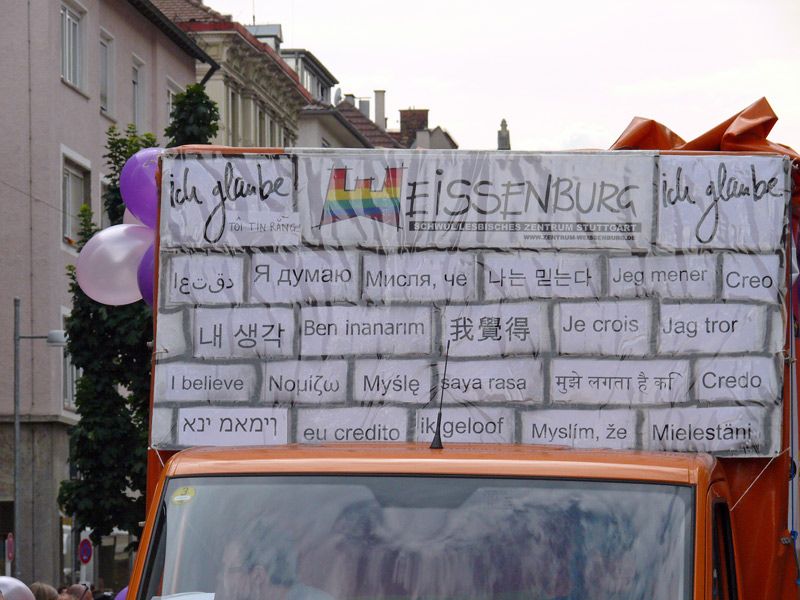 ich glaube! WEISSENBURG ich glaube
TÔI TIN RẰNG SCHWULLESBISCHES ZENTRUM STUTTGART
WWW.ZENTRUM-WEISSENBURG.DE
دقتعا Я думаю Мисля, че 나는 믿는다 Jeg mener Creo
내 생각 Ben inanarım 我覺得 Je crois Jag tror
I believe Νομίζω Myślę saya rasa मुझे लगता है कि Credo
אני מאמין eu credito ik geloof Myslím, že Mielestäni